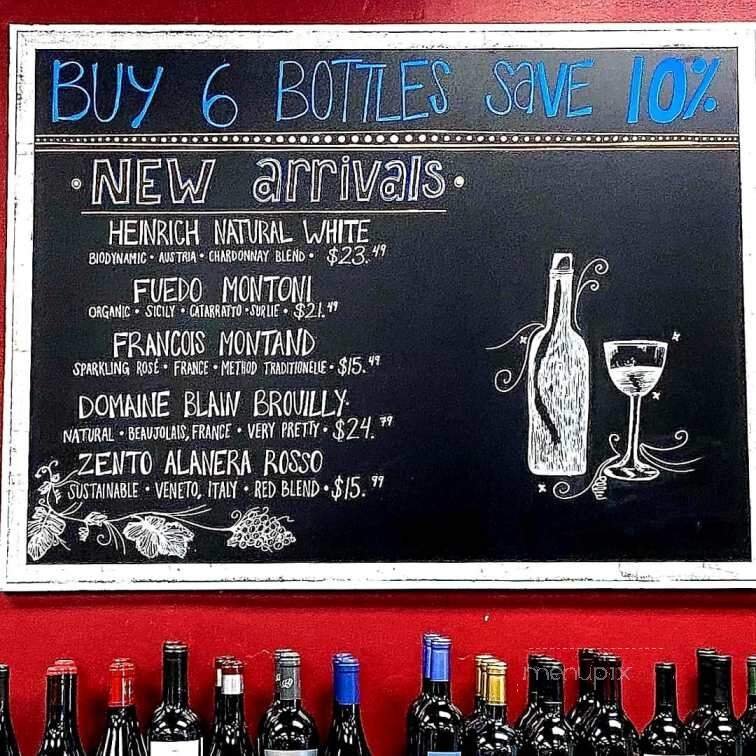 BUY 6 BOTTLES SAVE 10%
NEW arrivals
HEINRICH NATURAL WHITE
BIODYNAMIC • AUSTRIA • CHARDONNAY BLEND • $23.49
FUEDO MONTONI
ORGANIC • SICILY • CATARRATTO • SUR LIE • $21.49
FRANCOIS MONTAND
SPARKLING ROSÉ • FRANCE • METHOD TRADITIONELLE • $15.49
DOMAINE BLAIN BROUILLY
NATURAL • BEAUJOLAIS, FRANCE • VERY PRETTY • $24.79
ZENTO ALANERA ROSSO
SUSTAINABLE • VENETO, ITALY • RED BLEND • $15.99
menupix